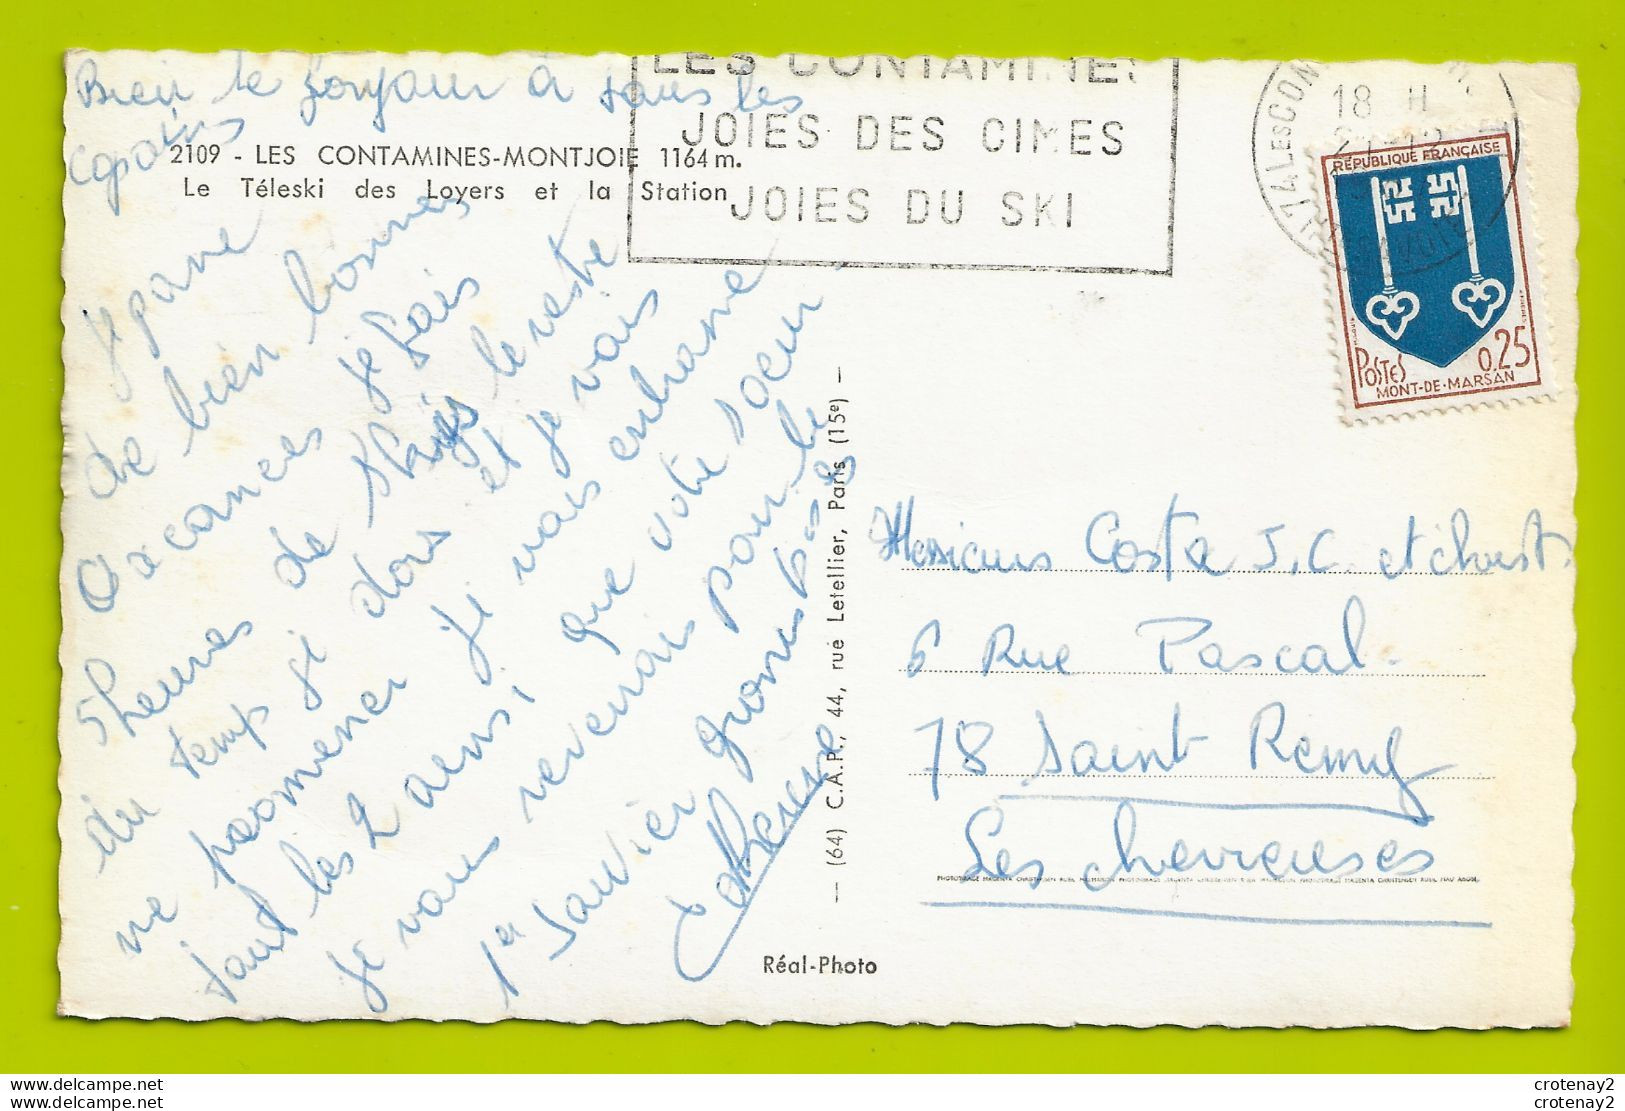 Bien le bonjour à tous les
copains
2109 - LES CONTAMINES-MONTJOIE 1164 m.
Le Téleski des Loyers et la Station
Je passe
de bien bonnes
vacances je fais
5 heures de skis le reste
du temps je dors et je vais
me promener je vous embrasse
tout les 2 ainsi que votre soeur
je vous reverrais pour le
1er Janvier grosses bises
Réal-Photo
— (64) C.A.P., 44, rue Letellier, Paris (15e) —
LES CONTAMINES
JOIES DES CIMES
JOIES DU SKI
18 H
RÉPUBLIQUE FRANÇAISE
POSTES 0.25
MONT-DE-MARSAN
Messieurs Costa J.C. et christ.
6 Rue Pascal.
78 Saint Remy
Les chevreuses
delcampe.net
delcampe.net
crotenay2
crotenay2